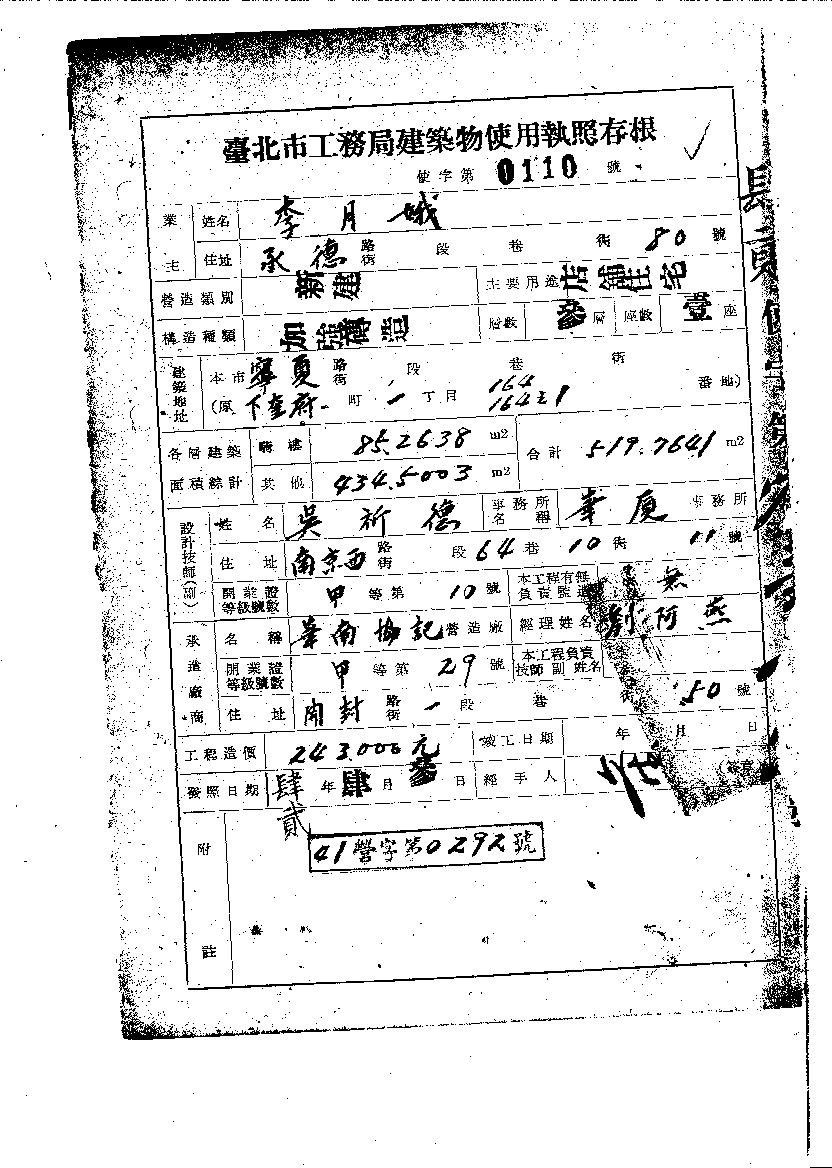 臺北市工務局建築物使用執照存根
使字第 0110 號
業主 姓名 李月娥
住址 承德 路街 段 巷 街 80 號
營造類別 新建 主要用途 店舖住宅
構造種類 加強磚造 層數 參 層 座數 壹 座
建築地址 本市 寧夏 路街 段 巷 街
(原 下奎府 町 一 丁目 164 164之1 番地)
各層建築面積總計 騎樓 85.2638 m2 合計 519.7641 m2
其他 434.5003 m2
設計技師(副) 姓名 吳祈德 事務所名稱 事務所
住址 南京西 路街 段 64 巷 10 街 11 號
開業證等級號數 甲 等第 10 號 本工程有無負責監造 無
承造廠商 名稱 華南協記 營造廠 經理姓名 劉阿燕
開業證等級號數 甲 等第 29 號 本工程負責技師副姓名
住址 開封 路街 一 段 巷 街 50 號
工程造價 243.000元 竣工日期 年 月 日
發照日期 肆貳 年 肆 月 參 日 經手人
附註
41營字第0292號